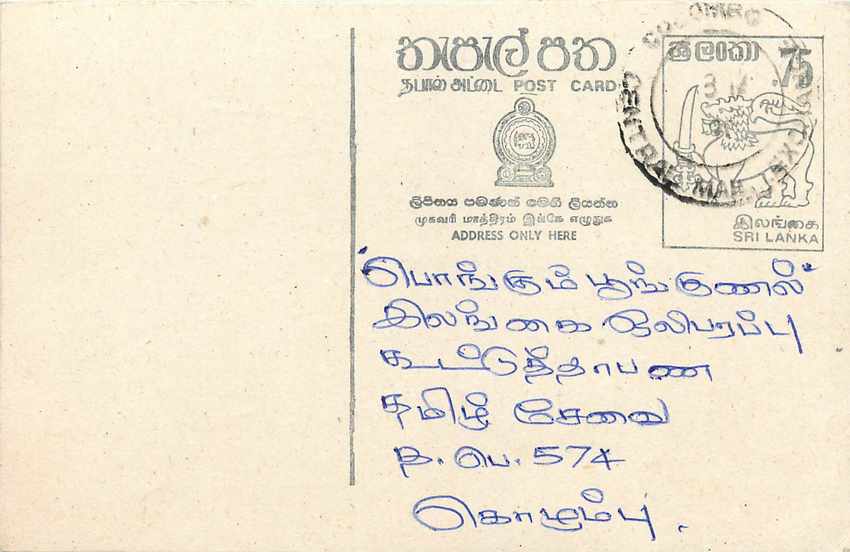 තැපැල් පත
தபால் அட்டை POST CARD
ලිපිනය පමණක් මෙහි ලියන්න
முகவரி மாத்திரம் இங்கே எழுதுக
ADDRESS ONLY HERE
ශ්‍රී ලංකා 75
இலங்கை
SRI LANKA
COLOMBO
CENTRAL MARKET
"பொங்கும் பூங்குணல்"
இலங்கை ஒலிபரப்பு
கூட்டுத்தாபண
தமிழ் சேவை
த. பெ. 574
கொழும்பு.